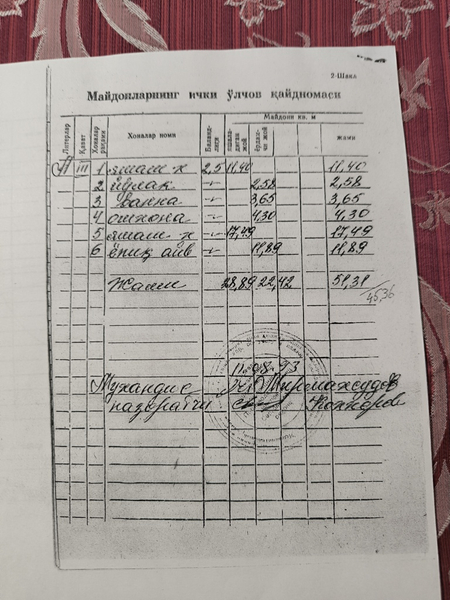 2-Шакл
Майдонларнинг ички ўлчов қайдномаси
Литерлар Қават Хоналар рақами Хоналар номи Баландлиги Майдони кв. м
яшаладиган жой ёрдамчи жой жами
А III 1 яшаш х 2,5 11,40 11,40
2 йўлак -"- 2,58 2,58
3 ванна -"- 3,65 3,65
4 ошхона -"- 4,30 4,30
5 яшаш х -"- 17,49 17,49
6 ёпиқ айв -"- 11,89 11,89
Жами 28,89 22,42 51,31
45,36
11.08.93
Мухандис Мирмахсудов
назоратчи